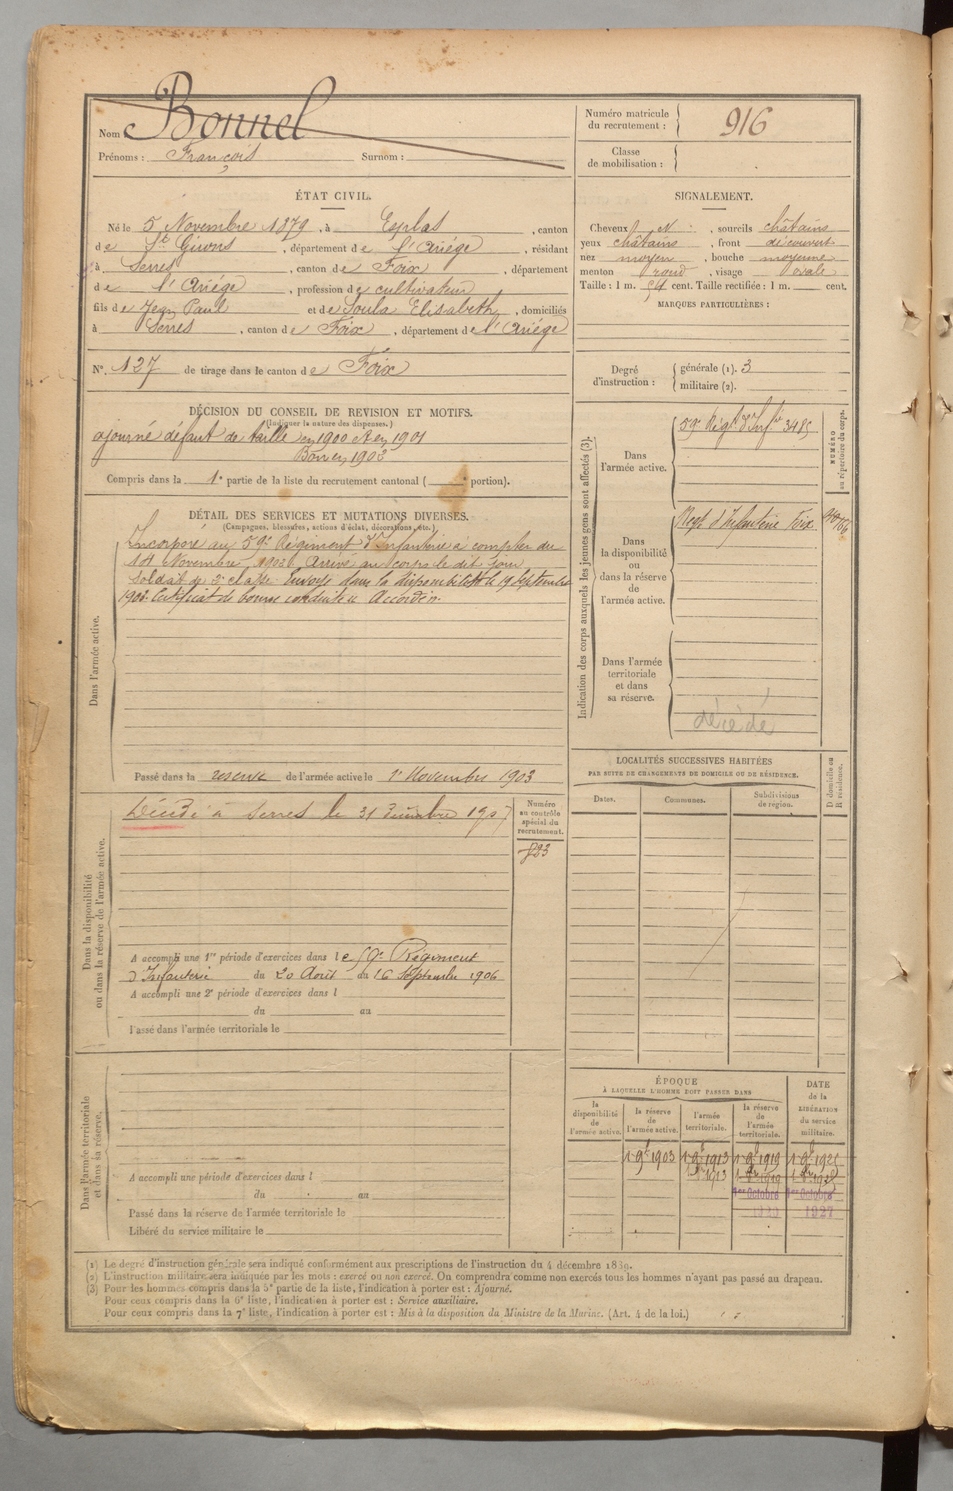 Nom Bonnel
Prénoms : François Surnom :
Numéro matricule du recrutement : 916
Classe de mobilisation :
ÉTAT CIVIL.
Né le 5 Novembre 1879, à Esplas, canton
de St Girons, département de l'Ariége, résidant
à Serres, canton de Foix, département
de l'Ariége, profession de cultivateur
fils de Jean Paul et de Soula Elisabeth, domiciliés
à Serres, canton de Foix, département de l'Ariége
N° 127 de tirage dans le canton de Foix
SIGNALEMENT.
Cheveux N., sourcils châtains
yeux châtains, front découvert
nez moyen, bouche moyenne
menton rond, visage ovale
Taille : 1 m. 54 cent. Taille rectifiée : 1 m. cent.
MARQUES PARTICULIÈRES :
Degré d'instruction :
générale (1). 3
militaire (2).
DÉCISION DU CONSEIL DE REVISION ET MOTIFS.
(Indiquer la nature des dispenses.)
ajourné défaut de taille en 1900 et en 1901
Bon en 1902
Compris dans la 1e partie de la liste du recrutement cantonal ( portion).
DÉTAIL DES SERVICES ET MUTATIONS DIVERSES.
(Campagnes, blessures, actions d'éclat, décorations, etc.)
Dans l'armée active.
Incorporé au 59e Régiment d'Infanterie à compter du
Novembre 1902. Arrivé au corps le dit jour
Soldat de 2e classe. Envoyé dans la disponibilité le 19 Septembre
1903. Certificat de bonne conduite Accordé.
Passé dans la reserve de l'armée active le 1er Novembre 1903
Indication des corps auxquels les jeunes gens sont affectés (3).
NUMÉRO au répertoire du corps.
Dans l'armée active.
59e Régt d'Infie 3485
Dans la disponibilité ou dans la réserve de l'armée active.
Régt d'Infanterie Foix
Dans l'armée territoriale et dans sa réserve.
décédé
LOCALITÉS SUCCESSIVES HABITÉES
PAR SUITE DE CHANGEMENTS DE DOMICILE OU DE RÉSIDENCE.
Dates. Communes. Subdivisions de région.
D domicile ou R résidence.
Dans la disponibilité ou dans la réserve de l'armée active.
Décédé à Serres le 31 Décembre 1907
Numéro au contrôle spécial du recrutement.
823
A accompli une 1re période d'exercices dans le 59e Régiment
d'Infanterie du 20 Août au 16 Septembre 1906
A accompli une 2e période d'exercices dans l
du au
Passé dans l'armée territoriale le
Dans l'armée territoriale et dans sa réserve.
A accompli une période d'exercices dans l
du au
Passé dans la réserve de l'armée territoriale le
Libéré du service militaire le
ÉPOQUE
À LAQUELLE L'HOMME DOIT PASSER DANS
DATE de la LIBÉRATION du service militaire.
la disponibilité de l'armée active. la réserve de l'armée active. l'armée territoriale. la réserve de l'armée territoriale.
1 9bre 1903 1 9bre 1913 1 9bre 1919
1913 1919
1er Octobre 1er Octobre
1927
(1) Le degré d'instruction générale sera indiqué conformément aux prescriptions de l'instruction du 4 décembre 1889.
(2) L'instruction militaire sera indiquée par les mots : exercé ou non exercé. On comprendra comme non exercés tous les hommes n'ayant pas passé au drapeau.
(3) Pour les hommes compris dans la 5e partie de la liste, l'indication à porter est : Ajourné.
Pour ceux compris dans la 6e liste, l'indication à porter est : Service auxiliaire.
Pour ceux compris dans la 7e liste, l'indication à porter est : Mis à la disposition du Ministre de la Marine. (Art. 4 de la loi.)